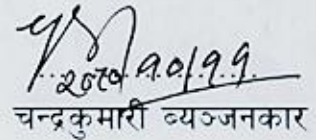 २०८०।१०।११
चन्द्रकुमारी ब्यञ्जनकार